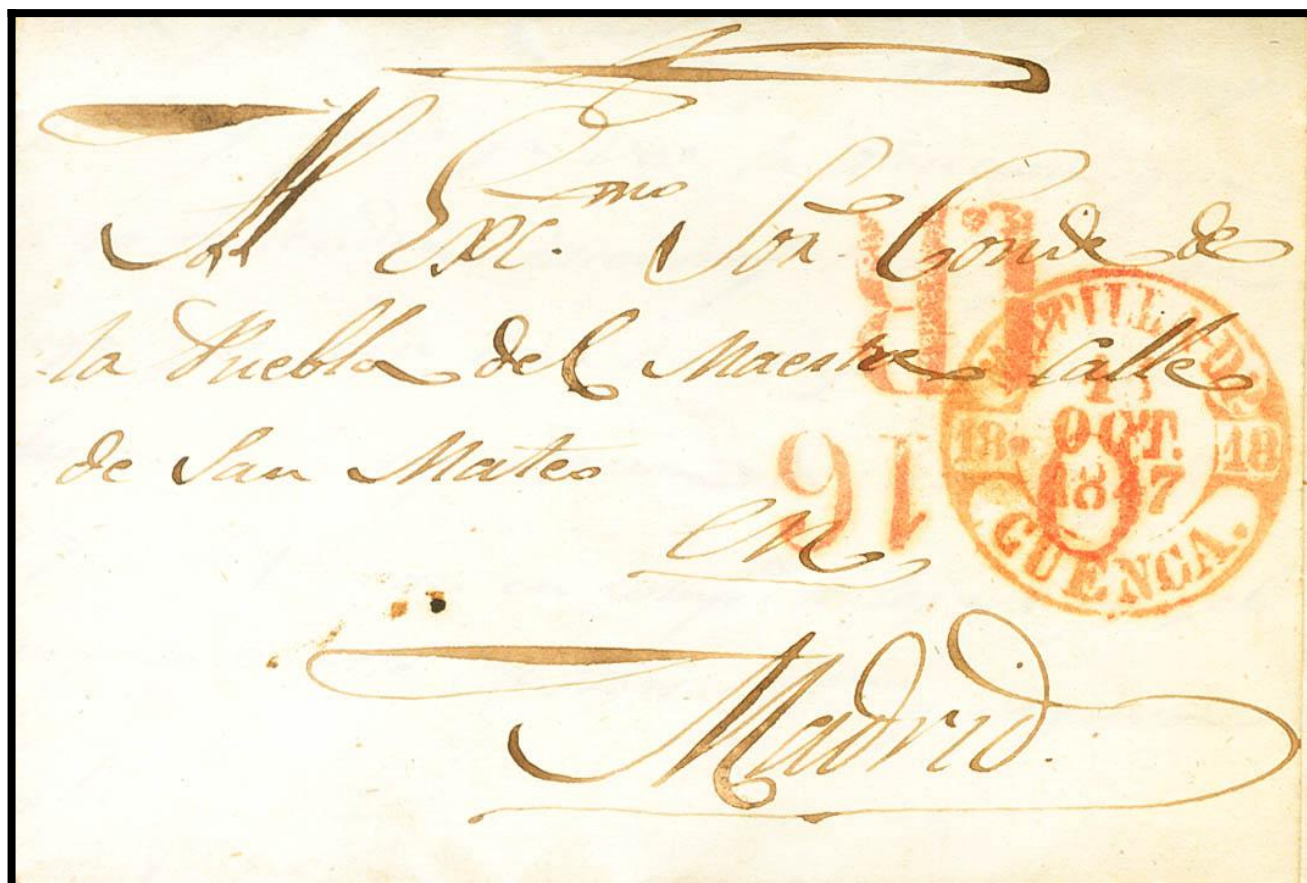 Al Exc.mo Sor. Conde de
la Puebla del Maestre Calle
de San Mateo
en
Madrid.
18 OCT. 18
1847
CUENCA.